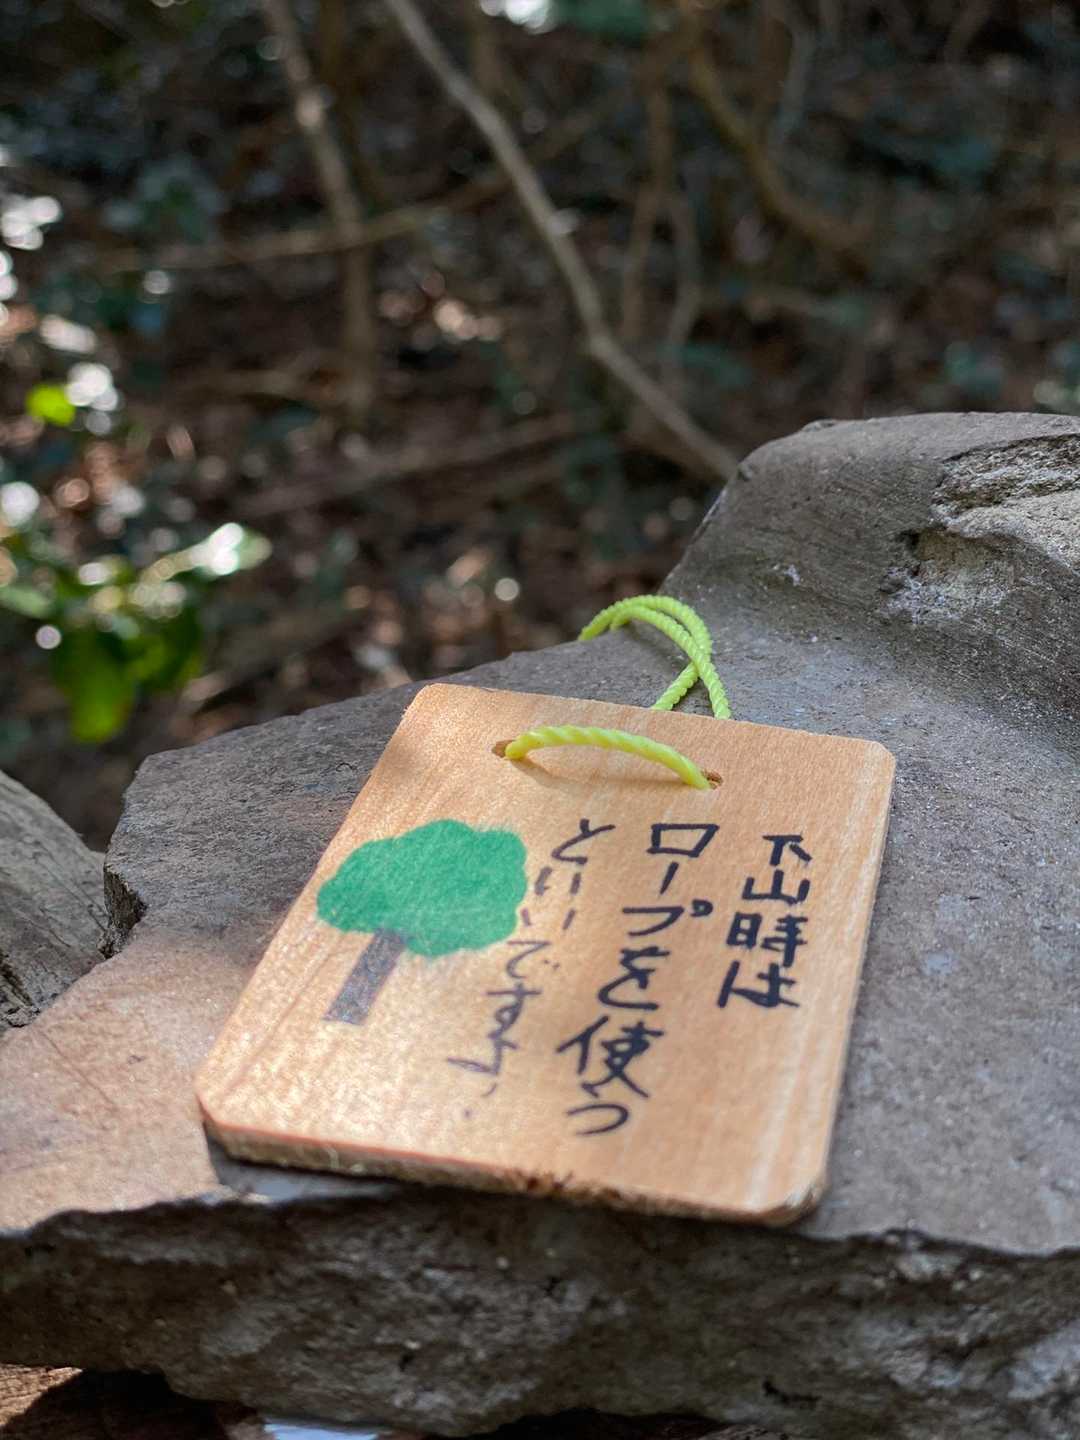 下山時は
ロープを使う
といいですよ。